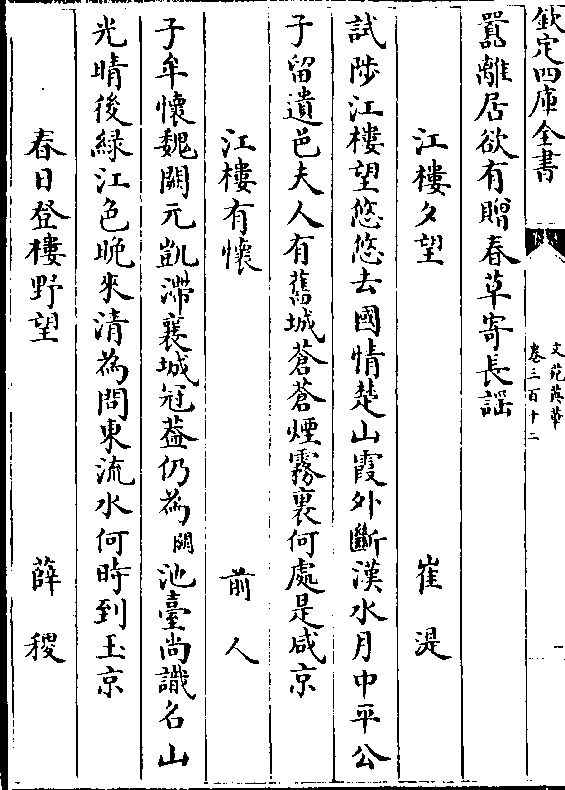 欽定四庫全書
文苑英華
卷三百十二
囂離居欲有贈春草寄長謡
江樓夕望 崔湜
試陟江樓望悠悠去國情楚山霞外斷漢水月中平公
子留遺邑夫人有舊城蒼蒼煙霧裏何處是咸京
江樓有懷 前人
子牟懷魏闕元凱滯襄城冠葢仍為闕池臺尚識名山
光晴後緑江色晚來清為問東流水何時到玉京
春日登樓野望 薛稷